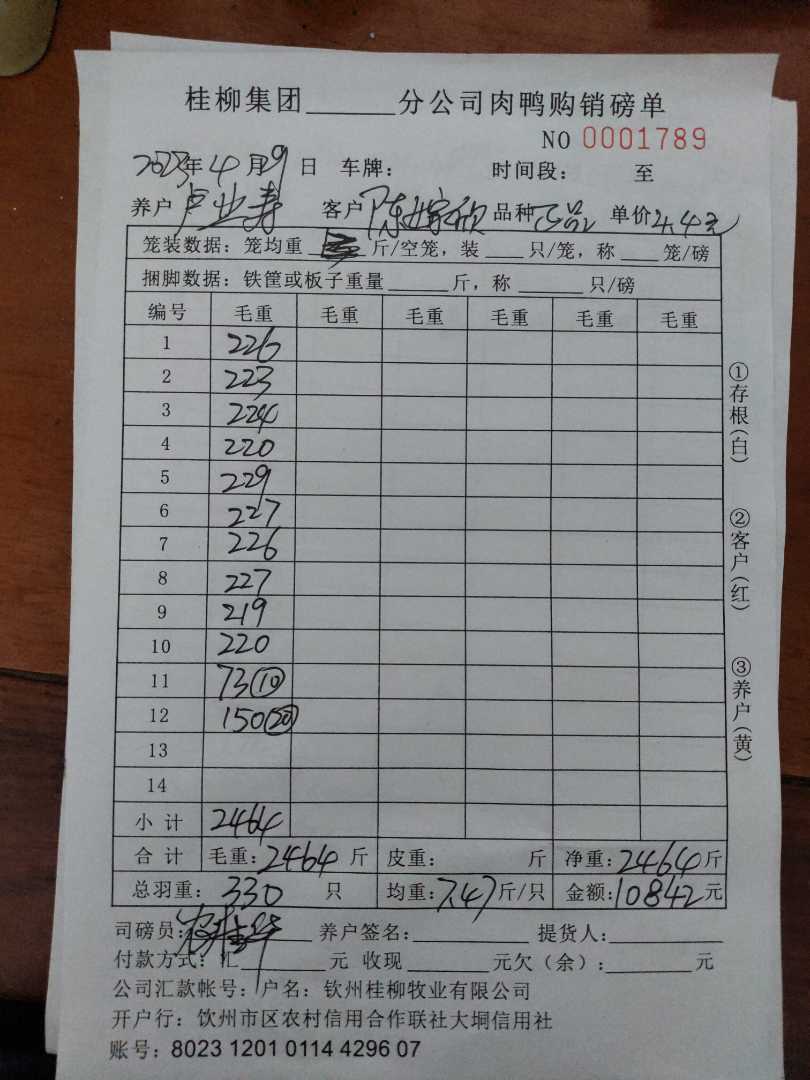 桂柳集团______分公司肉鸭购销磅单
NO 0001789
2023年4月29日 车牌： 时间段： 至
养户 卢业寿 客户 陈嫁欣 品种 正品 单价 4.4元
笼装数据：笼均重____斤/空笼，装____只/笼，称____笼/磅
捆脚数据：铁筐或板子重量______斤，称______只/磅
编号 毛重 毛重 毛重 毛重 毛重 毛重
1 226
2 223
3 224
4 220
5 229
6 227
7 226
8 227
9 219
10 220
11 73⑩
12 150⑳
13
14
小计 2464
合计 毛重：2464斤 皮重： 斤 净重：2464斤
总羽重：330只 均重：7.47斤/只 金额：10842元
司磅员： 养户签名：________ 提货人：________
付款方式：汇______元 收现______元欠（余）：______元
公司汇款帐号：户名：钦州桂柳牧业有限公司
开户行：钦州市区农村信用合作联社大垌信用社
账号：8023 1201 0114 4296 07
①存根(白)
②客户(红)
③养户(黄)